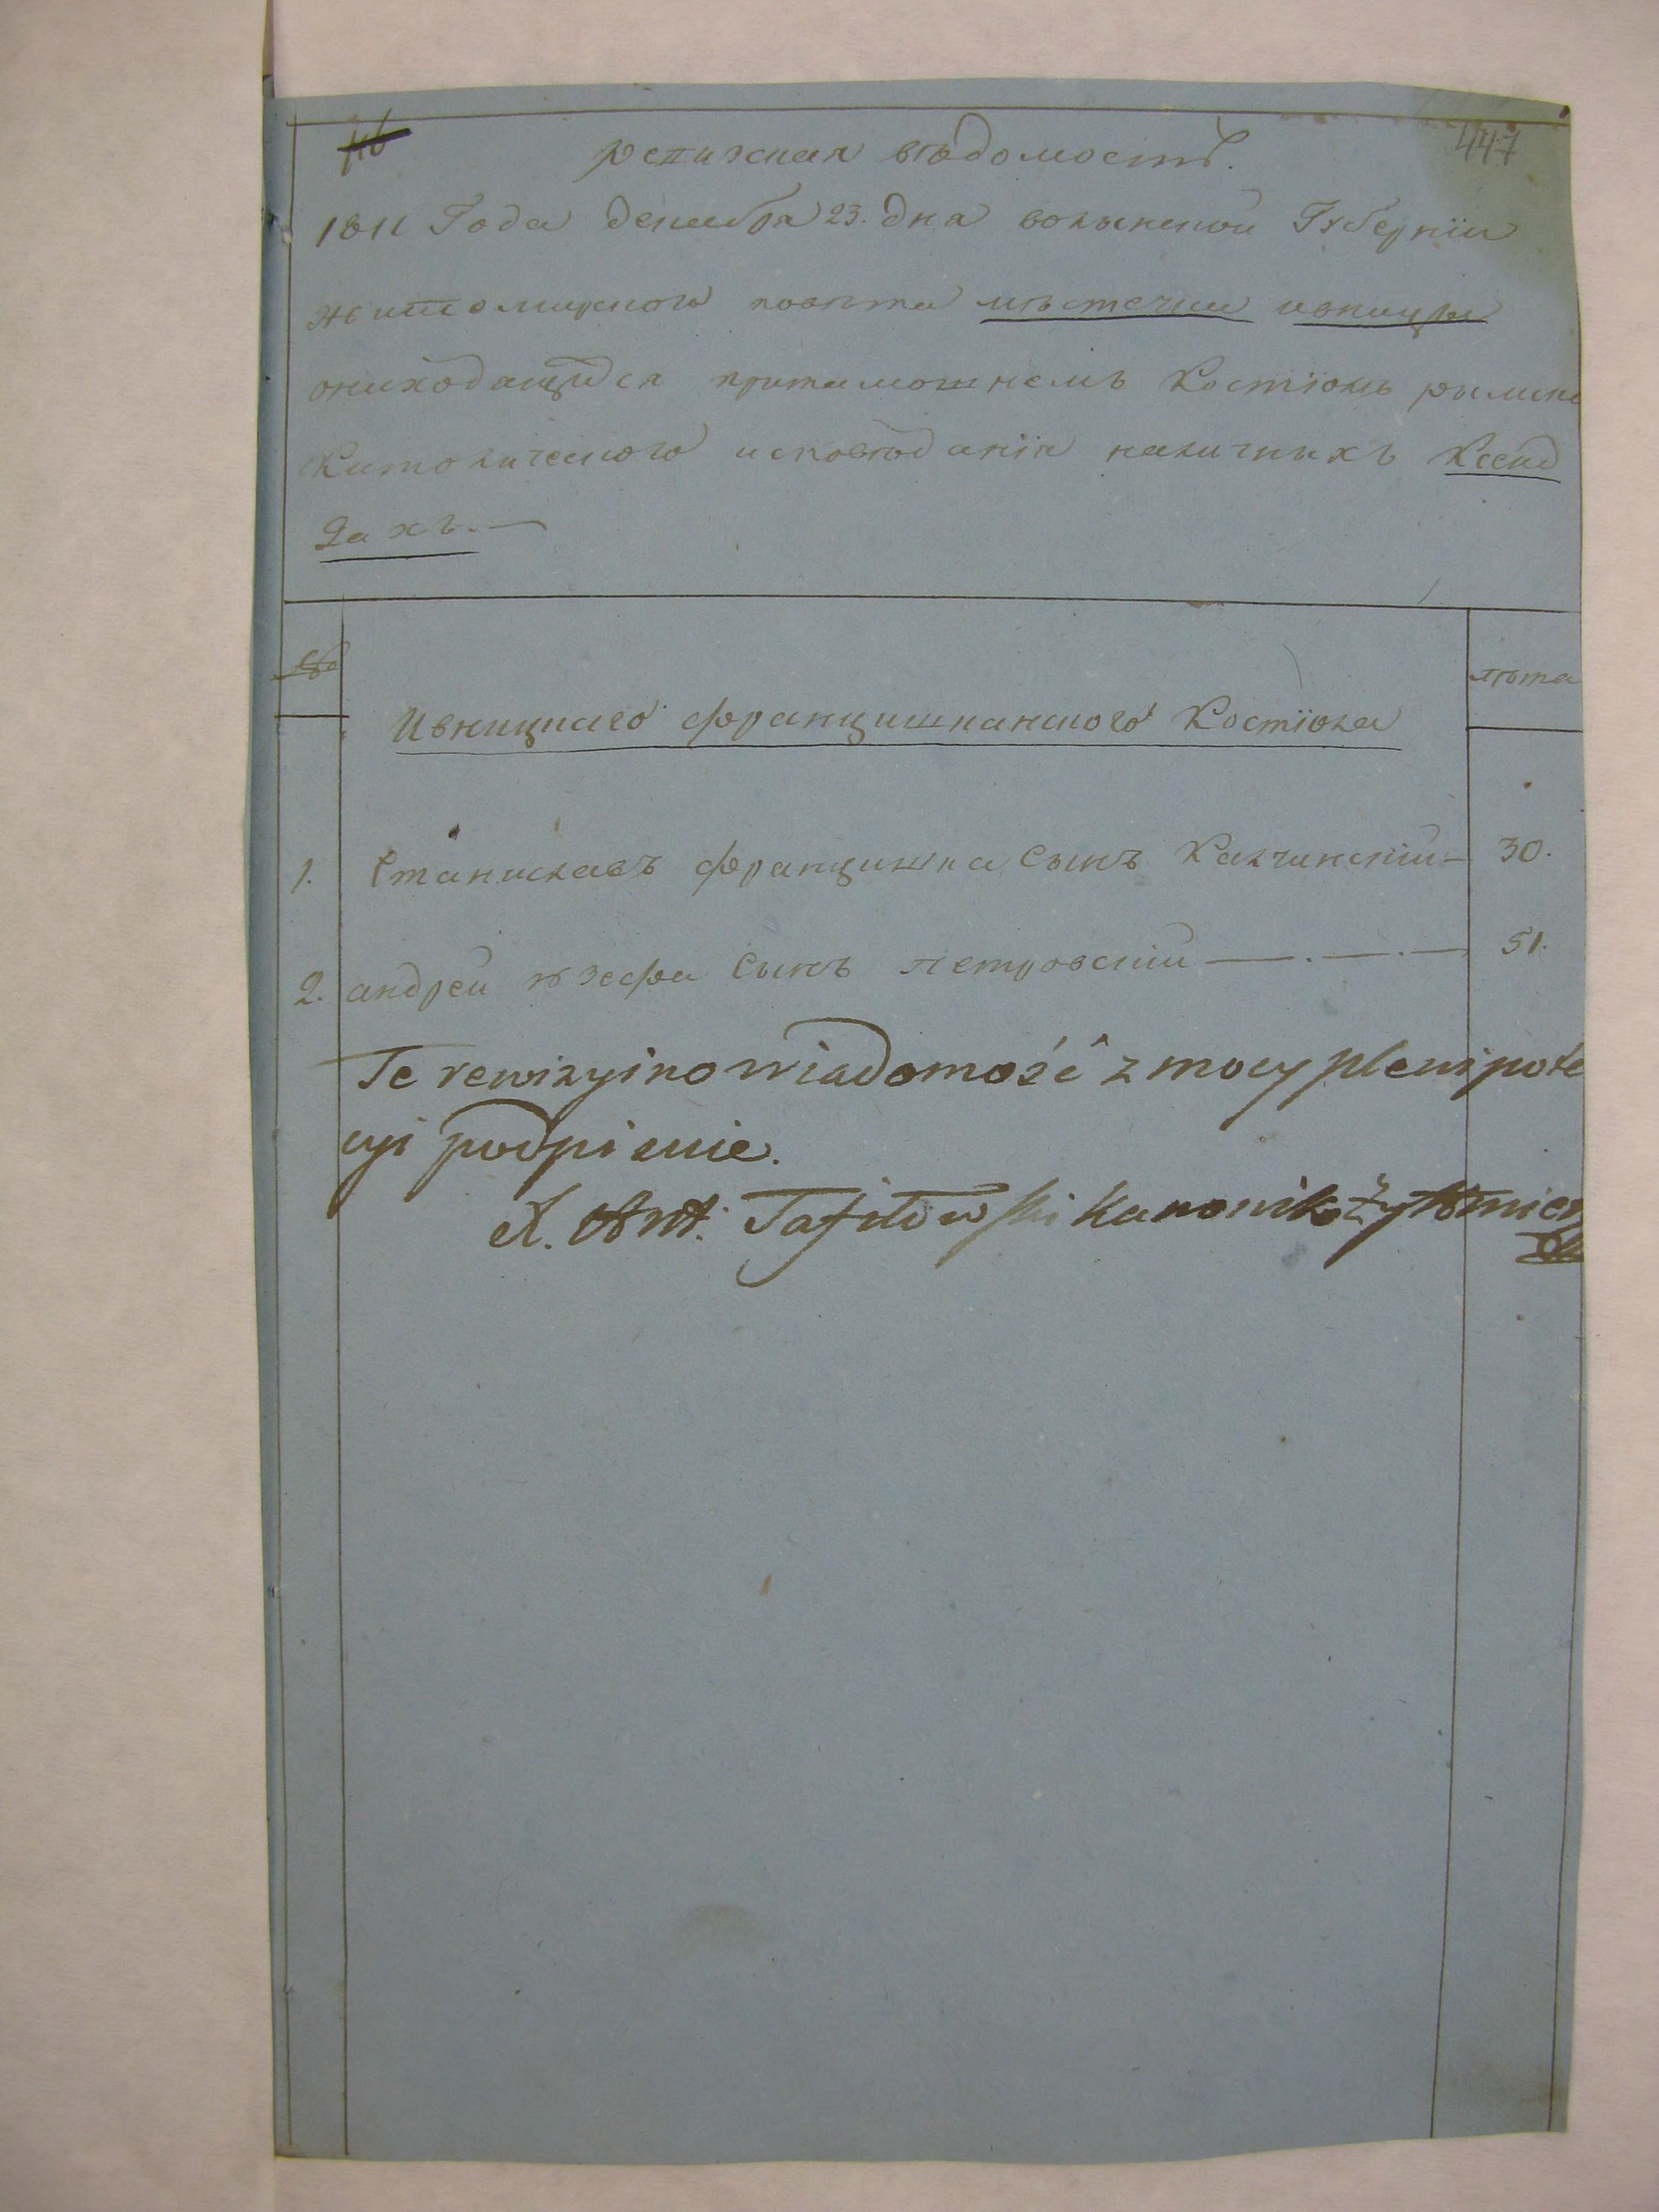 116 447
ревизская вѣдомость.
1811 Года декабря 23. дня волынской Губернїи
житомирского повѣта мѣстечки ивницы
онаходящихся притамошнемъ Костїолѣ римско
Католического исповѣданїя наличныхъ Ксенд
Захъ.—
№ лѣта
Ивницкаго францишканского Костїола
1. Станиславъ францишка Сынъ Калчинскїй— 30.
2. андрей юзефа Сынъ петровскїй —.—.— 51.
Te rewizyino wiadomość z mocy plenipote
cyi podpisuie.
X. Ant: kanonik Żytomier